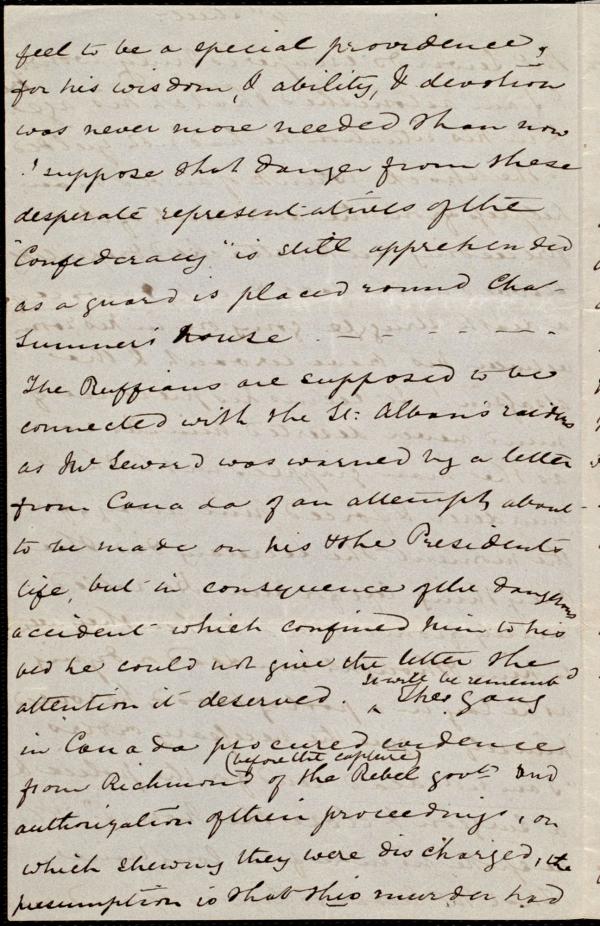 feel to be a special providence,
for his wisdom, & ability, & devotion
was never more needed than now
I suppose that danger from these
desperate representatives of the
"Confederacy" is still apprehended
as a guard is placed round Cha-
Sumner's house - - - - - -
The Ruffians are supposed to be
connected with the St: Alban's raiders
as Mr Seward was warned by a letter
from Canada of an attempt about
to be made on his & the Presidents
life, but in consequence of the dangerous
accident which confined him to his
bed he could not give the letter the
attention it deserved. It will be rememb'd
^ The gang
in Canada procured evidence
(before the capture)
from Richmond of the Rebel govt and
authorization of their proceedings, on
which shewing they were discharged, the
presumption is that this murder had